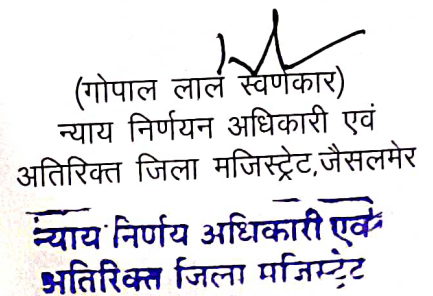 (गोपाल लाल स्वर्णकार)
न्याय निर्णयन अधिकारी एवं
अतिरिक्त जिला मजिस्ट्रेट,जैसलमेर
न्याय निर्णय अधिकारी एवं
अतिरिक्त जिला मजिस्ट्रेट